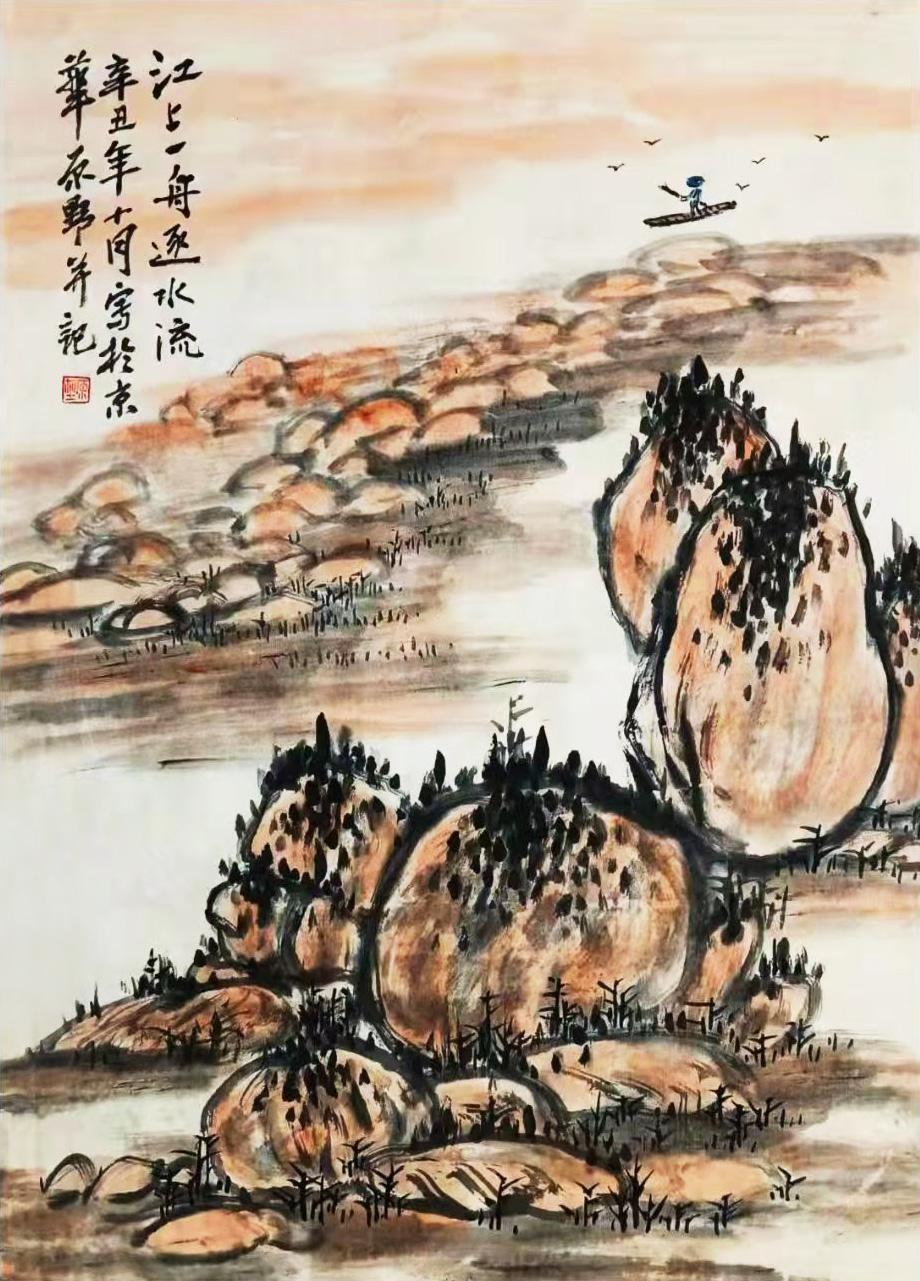 江上一舟逐水流
辛丑年十月写於京
華原野并記